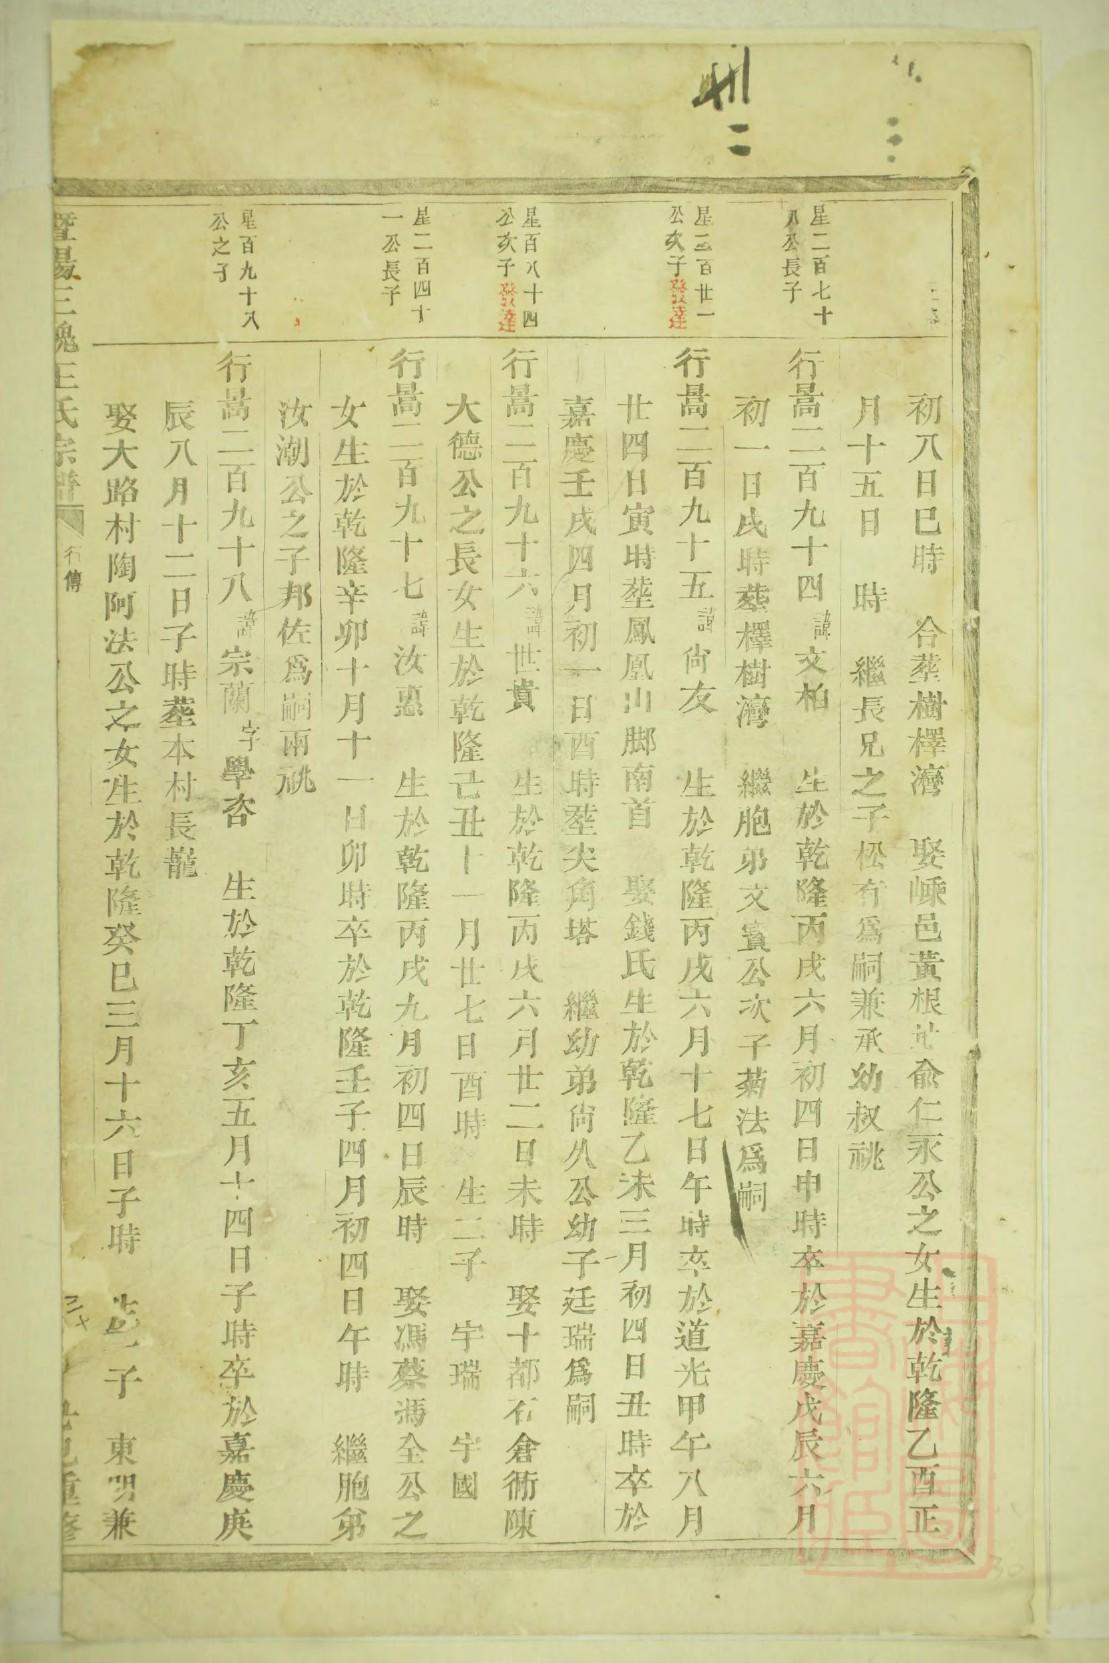 初八日巳時 合塟樹檡灣 娶嵊邑黃根 俞仁永公之女生於乾隆乙酉正
月十五日 時 繼長兄之子松有爲嗣兼承幼叔祧
星二百七十
八公長子
行暠二百九十四諱文柏 生於乾隆丙戌六月初四日申時卒於嘉慶戊辰六月
初一日戌時塟檡樹灣 繼胞弟文賓公次子菊法爲嗣
星二百廿一
公次子發達
行暠二百九十五諱尙友 生於乾隆丙戌六月十七日午時卒於道光甲午八月
廿四日寅時塟鳳凰山脚南首 娶錢氏生於乾隆乙未三月初四日丑時卒於
嘉慶壬戌四月初一日酉時塟尖角塔 繼幼弟尙久公幼子廷瑞爲嗣
星百八十四
公次子發達
行暠二百九十六諱世貴 生於乾隆丙戌六月廿二日未時 娶十都石倉衕陳
大德公之長女生於乾隆己丑十一月廿七日酉時 生二子 宇瑞 宇國
星二百四十
一公長子
行暠二百九十七諱汝惠 生於乾隆丙戌九月初四日辰時 娶馮蔡馮全公之
女生於乾隆辛卯十月十一日卯時卒於乾隆壬子四月初四日午時 繼胞弟
汝潮公之子邦佐爲嗣兩祧
星百九十八
公之子
行暠二百九十八諱宗蘭字學咨 生於乾隆丁亥五月十四日子時卒於嘉慶庚
辰八月十二日子時塟本村長蘢
娶大路村陶阿法公之女生於乾隆癸巳三月十六日子時 生一子 東明兼
暨陽三槐王氏宗譜 行傳